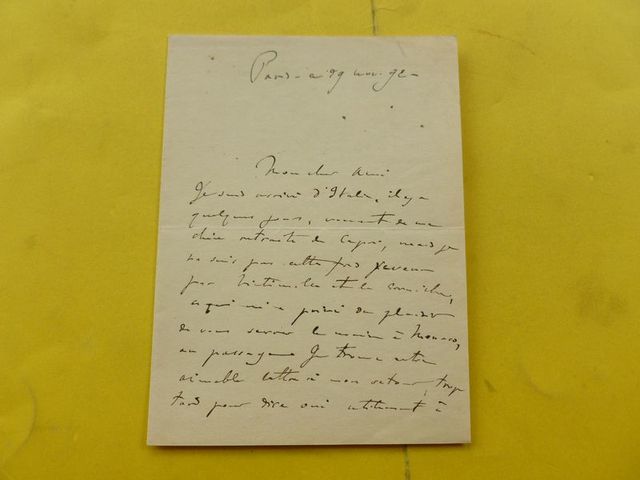 Paris - 29 nov. 92 -
Mon cher ami
Je suis arrivé d'Italie, il y a
quelques jours, venant de ma
chère retraite de Capri, mais je
ne suis pas cette fois revenu
par Vintimille et la corniche,
ce qui m'a privé du plaisir
de vous serrer la main à Monaco,
au passage. Je trouve votre
aimable lettre à mon retour, trop
tard pour dire oui utilement à